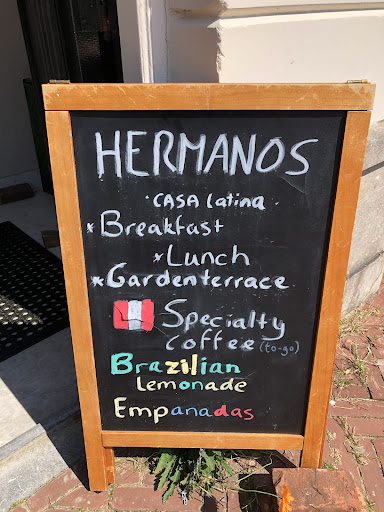 HERMANOS
· CASA Latina ·
* Breakfast
* Lunch
* Garden terrace
Specialty
coffee (to-go)
Brazilian
lemonade
Empanadas